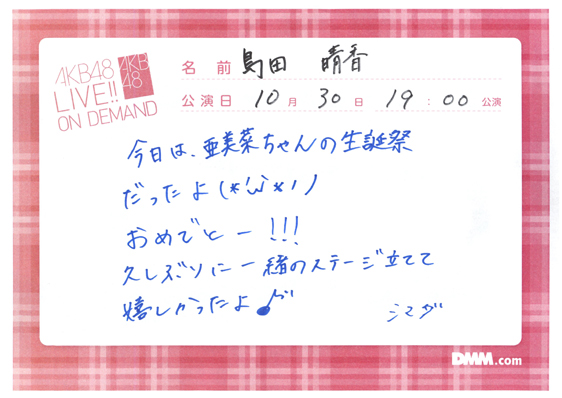 AKB48
LIVE!!
ON DEMAND
AKB
48
名前 島田 晴香
公演日 10月 30日 19:00 公演
今日は、亜美菜ちゃんの生誕祭
だったよ(*'ω'*ノ)
おめでとー!!!
久しぶりに一緒のステージ立てて
嬉しかったよ♪
シマダ
DMM.com